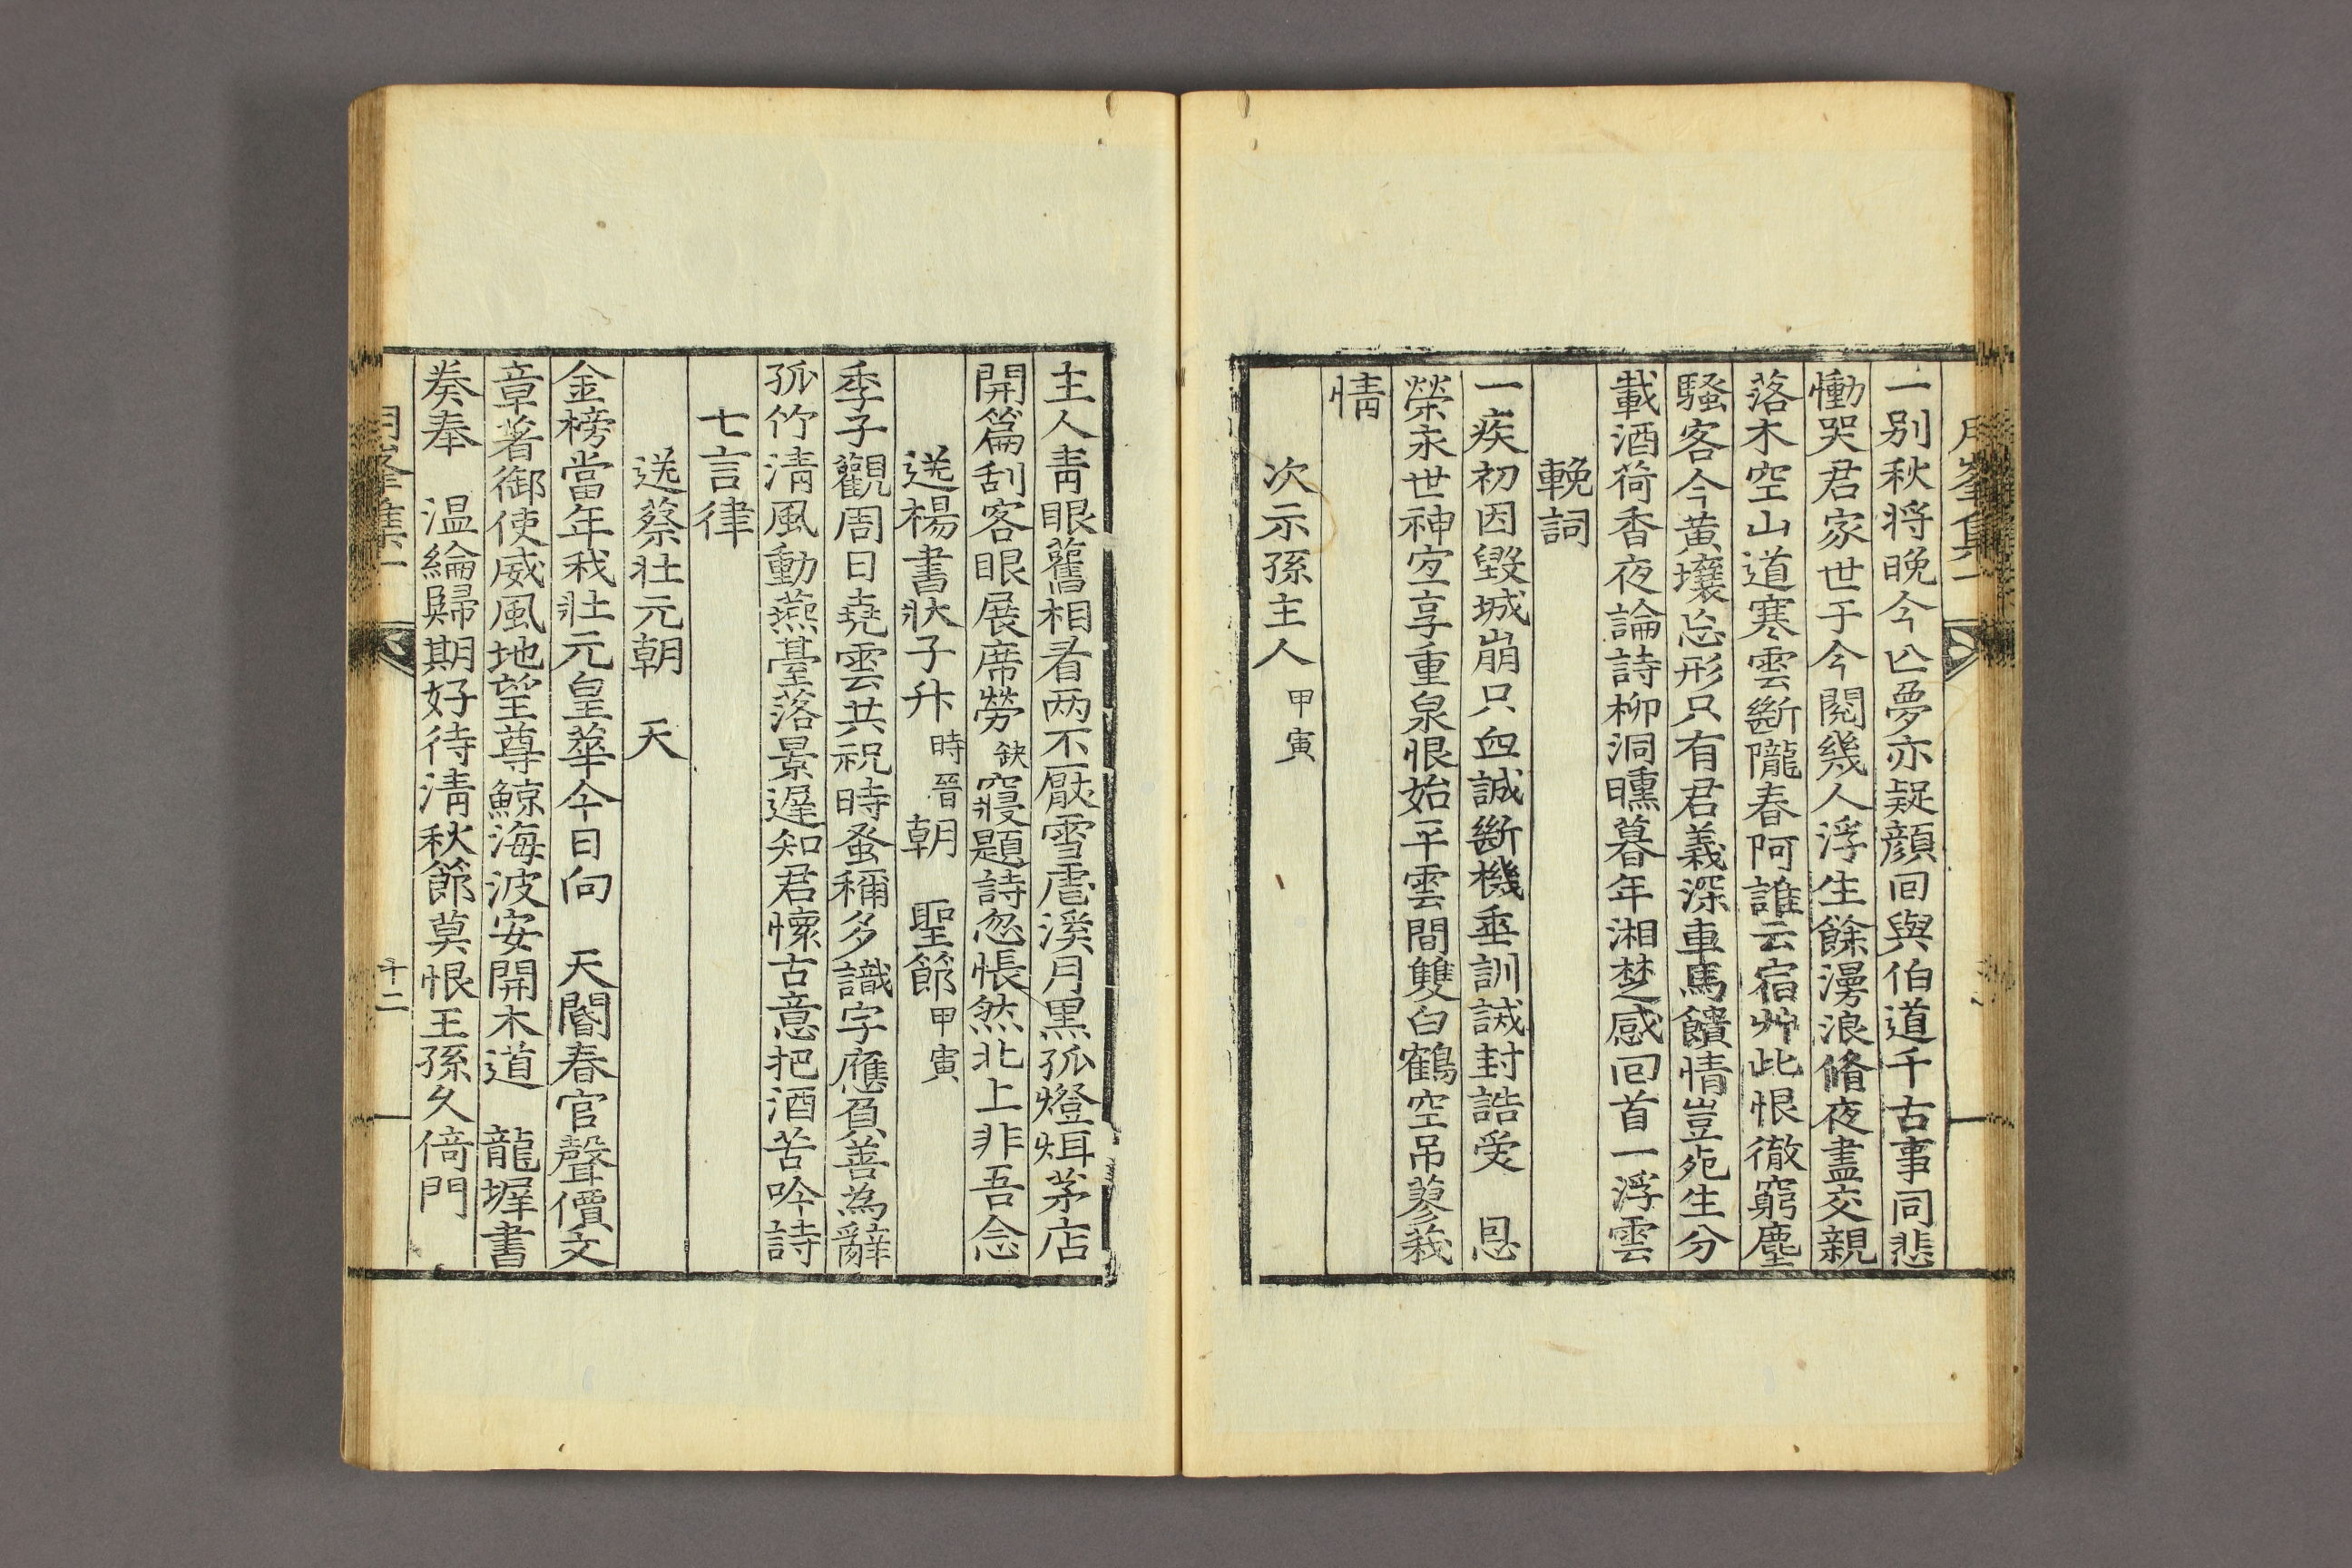 一别秋将晚今亾夢亦疑顔囘與伯道千古事同悲
慟哭君家世于今閱幾人浮生餘漫浪脩夜盡交親
落木空山道寒雲斷隴春阿誰云宿艸此恨徹窮塵
騷客今黄壤忘形只有君義深車馬饋情豈死生分
載酒荷香夜論詩柳洞曛暮年湘楚感回首一浮雲
輓詞
一疾初因毀城崩只血誠斷機垂訓誡封誥受 恩
榮永世神宜享重泉恨始平雲間雙白鶴空吊蓼莪
情
次示孫主人 甲寅
主人靑眼舊相看两不厭雪虐溪月黒孤燈煯茅店
開篇刮客眼展席勞 缺 寢題詩忽悵然北上非吾念
送楊書狀子升 時晉 朝 聖節 甲寅
季子觀周日堯雲共祝時蚤稱多識字應負善為辭
孤竹清風動燕臺落景遅知君懷古意把酒苦吟詩
七言律
送蔡壯元朝 天
金榜當年我壯元皇華今日向 天閽春官聲價文
章著御使威風地望尊鯨海波安開木道 龍墀書
奏奉 温綸歸期好待清秋節莫恨王孫久倚門
十二